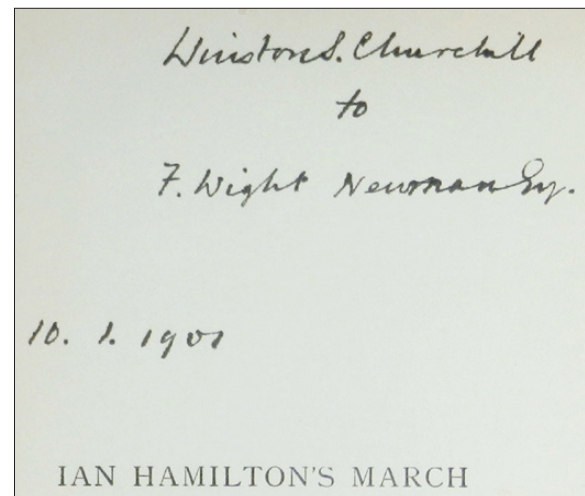 Winston S. Churchill
to
F. Wight Newman Esq.
10. 1. 1901
IAN HAMILTON'S MARCH